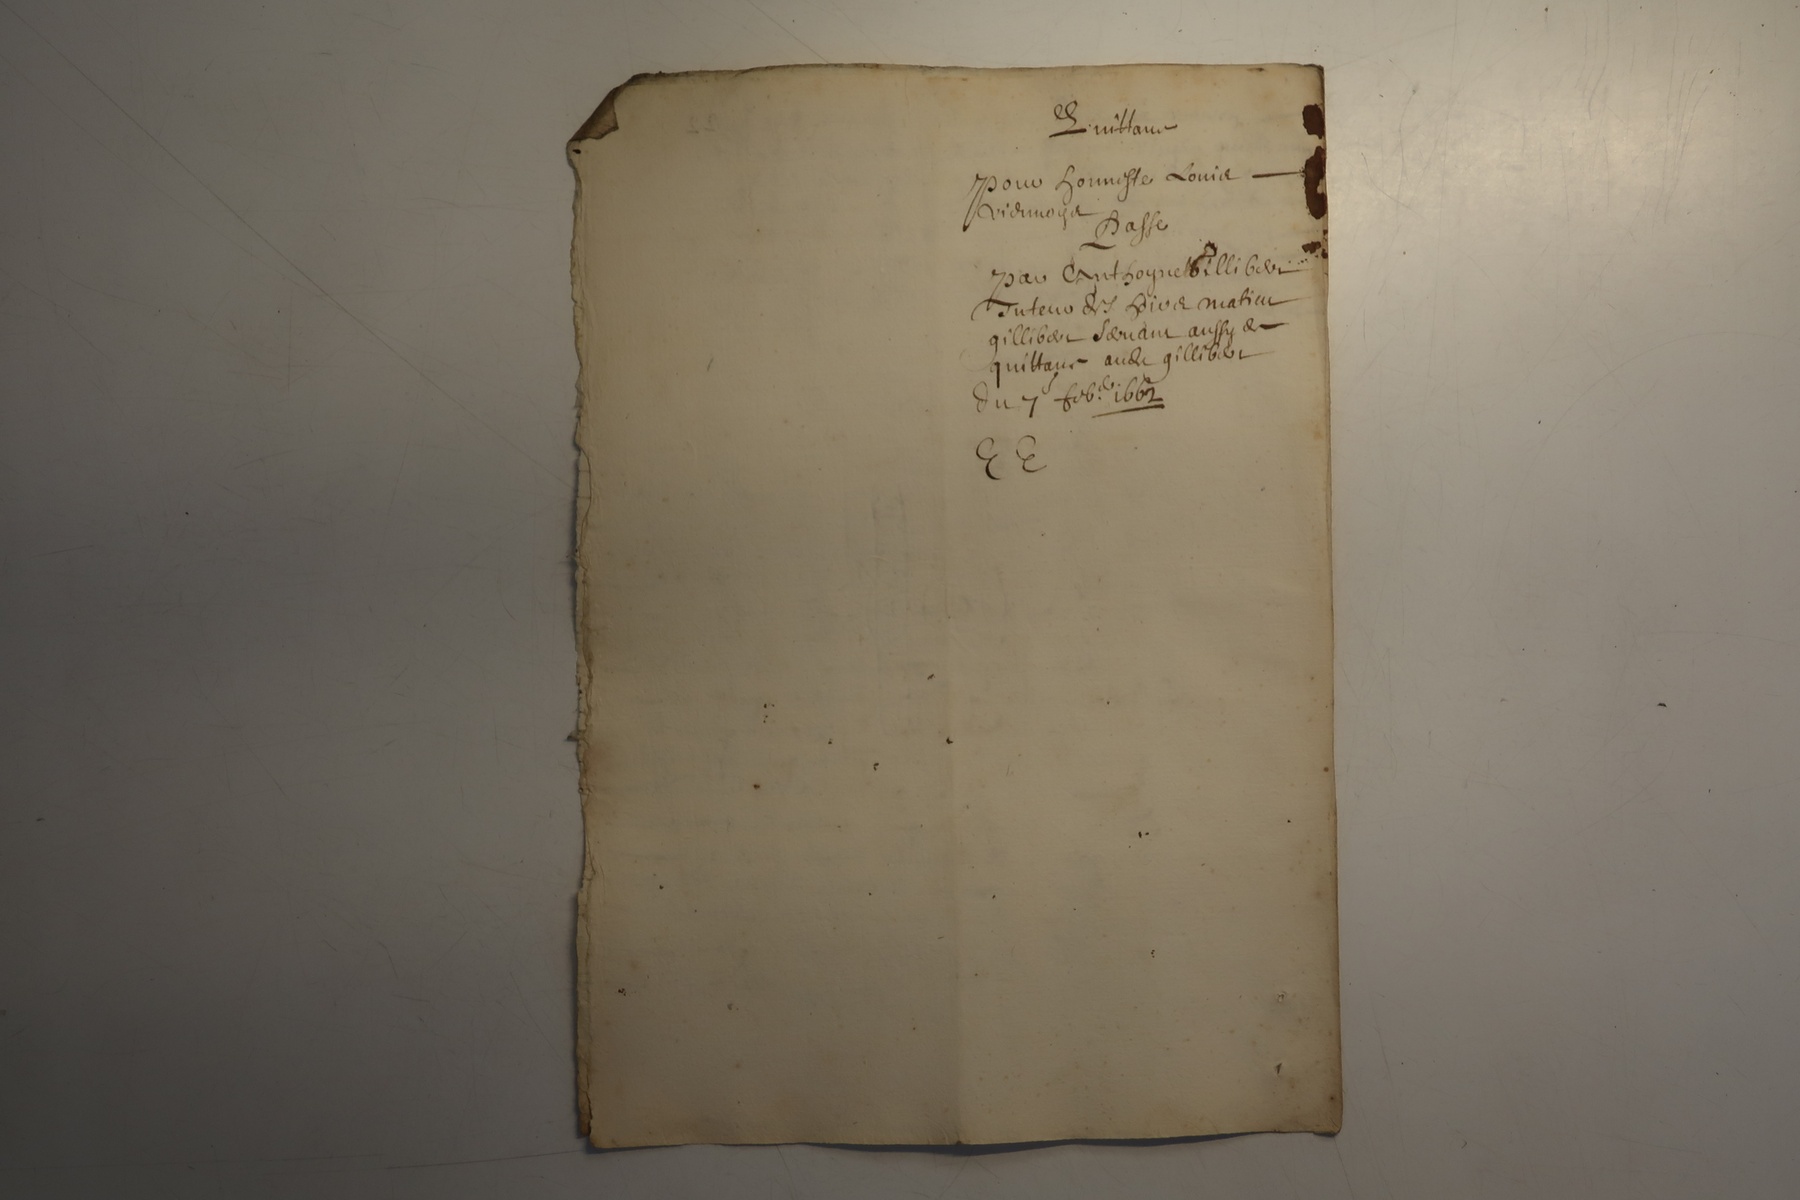 Quittance
Pour honneste Louis
Viennoys
Passe
Par Anthoyne Gilliber
Tuteur des hoirs matieu
gilliber servant aussy de
quittance aude gilliber
du 7 feb.er 1662
E E